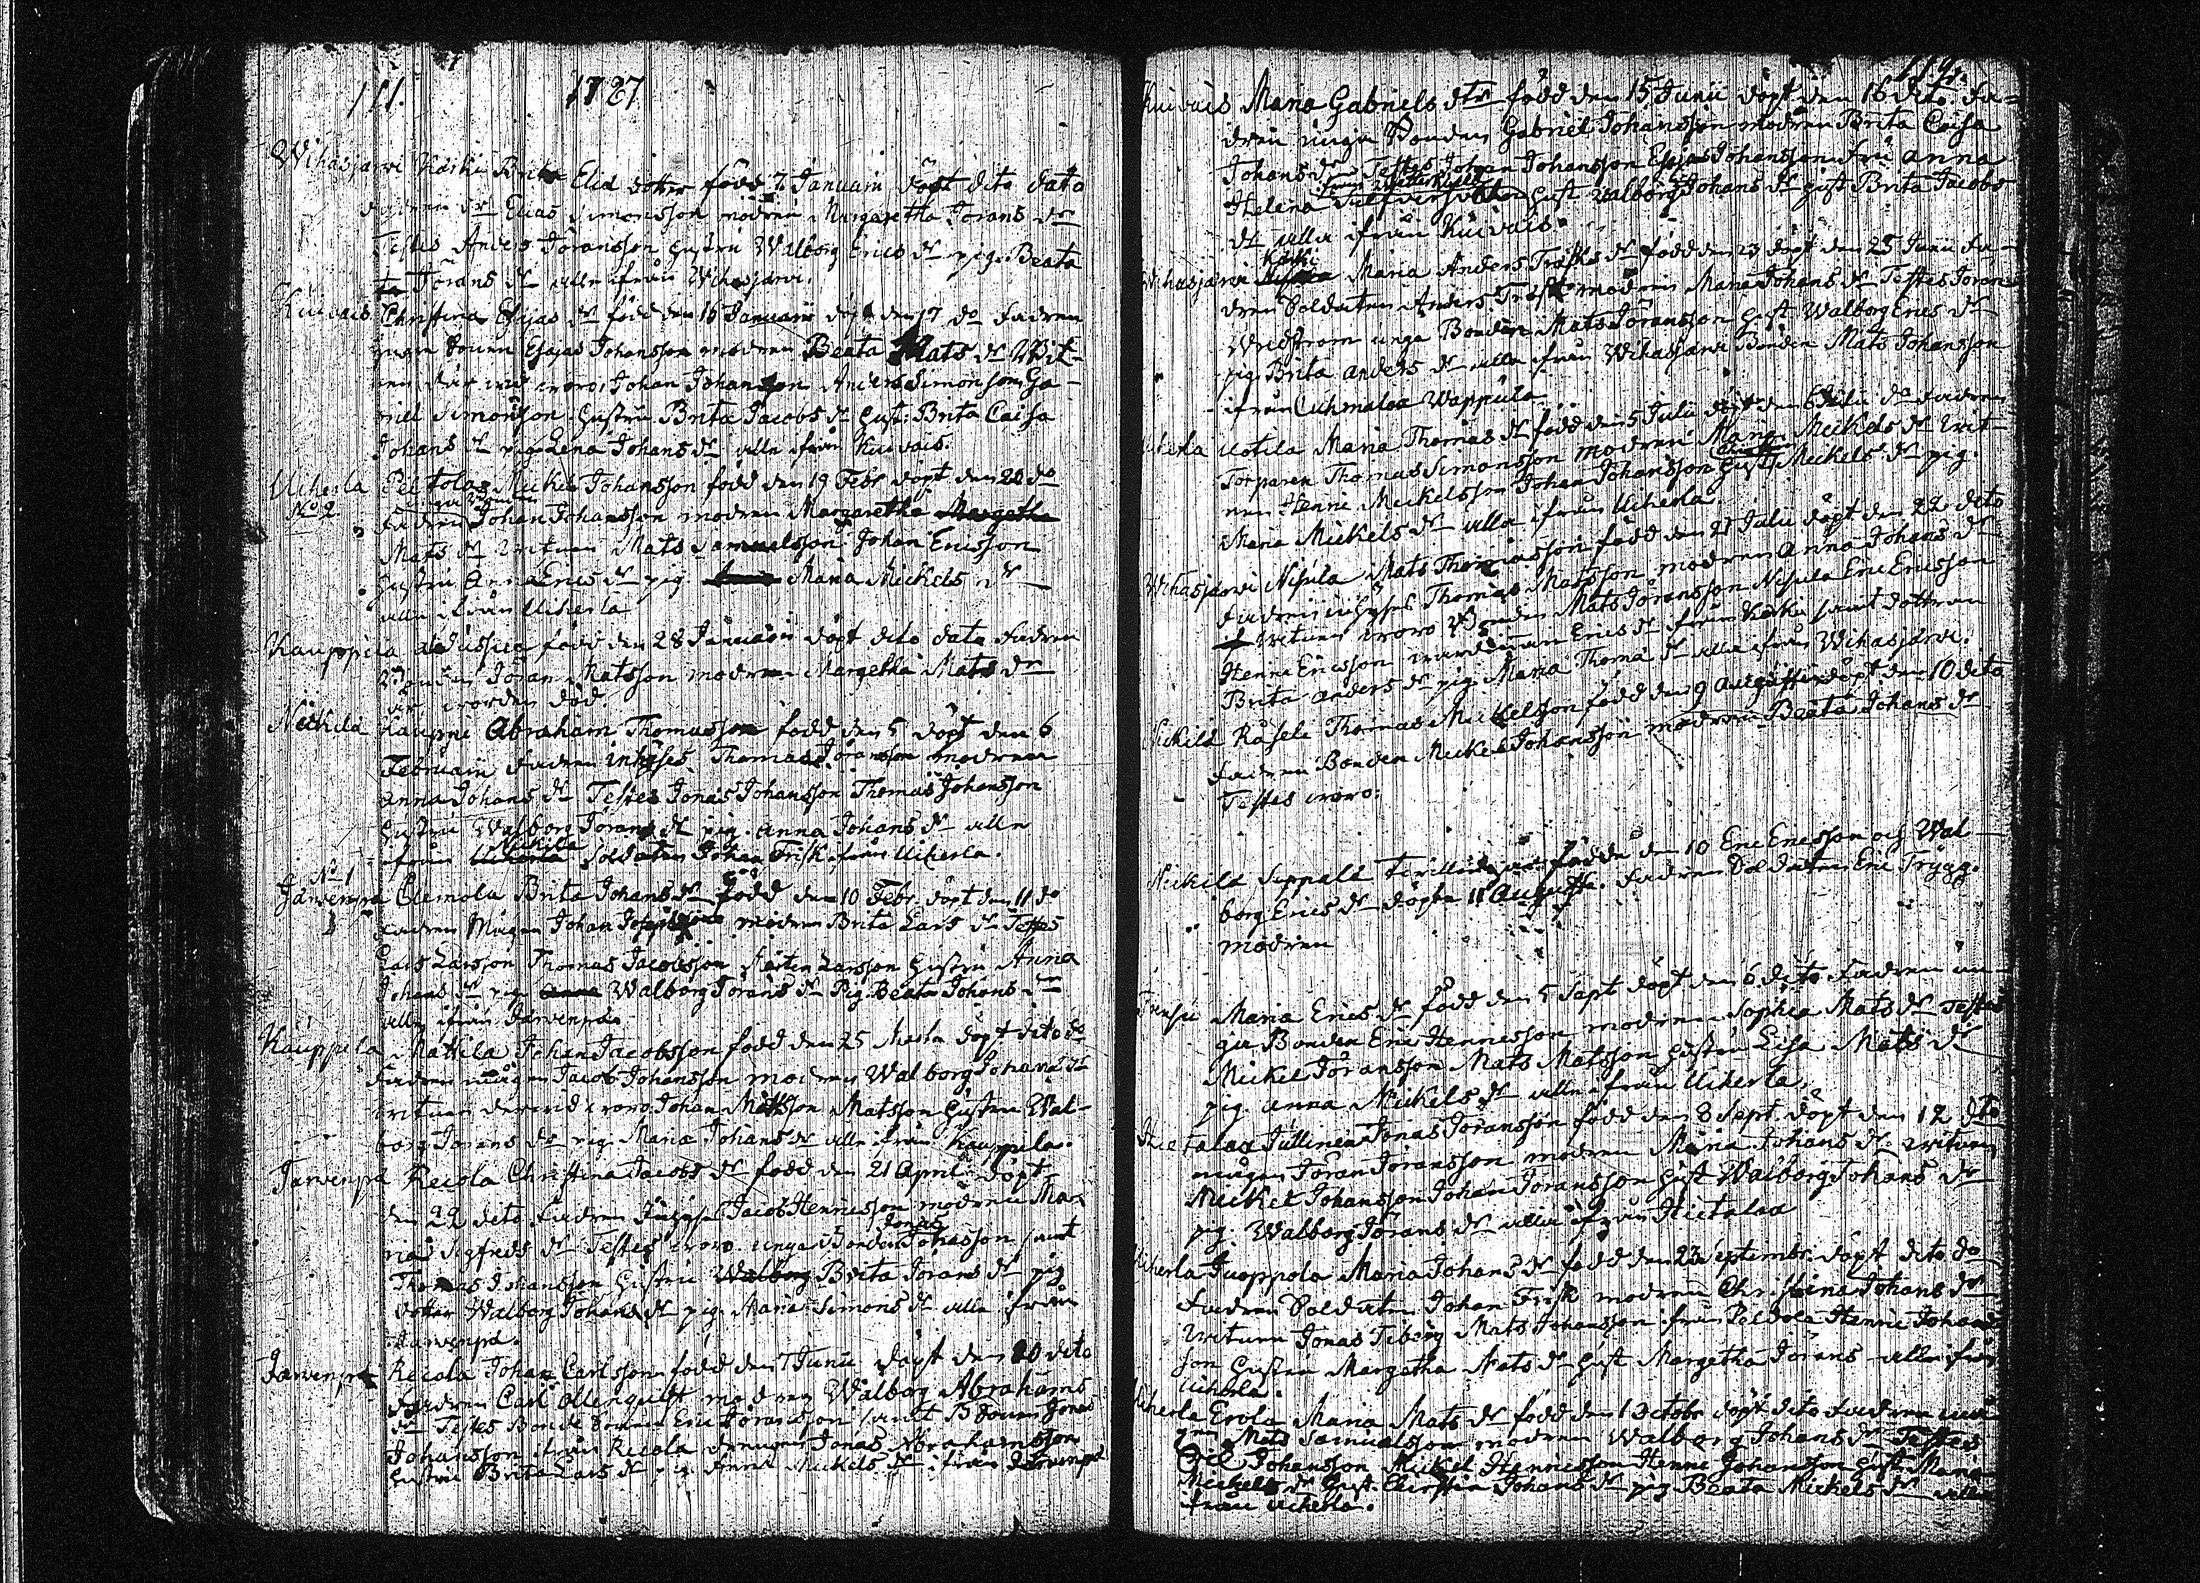 111. 1787
Wihasjärvi Kärki Brita Elia dotter född 7 Januarii döpt dito dato
fadren Elias Simonsson modren Margaretha Jörans dr
Testes Anders Jöransson hustru Walborg Erics dr pig. Beata
Jörans dr alla ifrån Wihasjärvi.
Kuivais Christina Esajas dr född den 16 Januarii döpt den 17 do fadren
Esajas Johansson modren Beata Mats dr Wit-
nen där wid woro, Johan Johansson Anders Simonsson Ga-
riel Simonsson hustru Brita Jacobs dr hust: Brita Caisa
Johans dr pig. Lena Johans dr alla ifrån Kuivais.
Uiherla Peltolas Mickel Johansson född den 19 Febr döpt den 20 do
No 2. fadren Johan Johansson modren Margaretha Margetha
Mats dr witnen Mats Samuelsson Johan Ericsson
hustru Anna Erics dr pig Maria Mickels dr
alla ifrån Uiherla
Kauppila född den 28 Januarii döpt dito dato fadren
Bonden Jöran Matsson modren Margetha Mats dr
är worden död.
Neckilä Kaupini Abraham Thomasson född den 5 döpt den 6
Februarii fadren inhyses Thomas Jöransson modren
Anna Johans dr Testes Jonas Johansson Thomas Johansson
hustru Walborg Jörans dr pig. Anna Johans dr alla
ifrån Uiherla Neckilä Soldaten Johan Frisk ifrån Uiherla.
No 1
Järvenpä Clemola Brita Johans dr född den 10 Febr. döpt den 11 do
fadren Mågen Johan modren Brita Lars dr Testes
Lars Larsson Thomas Jacobsson Mårten Larsson hustru Anna
Johans dr pig. Anna Walborg Jörans dr Pig. Beata Johans dr
alla ifrån Järvenpä
Kauppila Mattila Johan Jacobsson född den 25 Martii döpt dito do
fadren mågen Jacob Johansson modren Walborg Johans dr
witnen derwid woro Johan Mattsson Matsson hustru Wal-
borg Jörans dr pig. Maria Johans dr alla ifrån Kauppila.
Järvenpä Reeola Christina Jacobs dr född den 21 April döpt
den 22 dito fadren Inhyses Jacob Henricsson modren Ma-
ria Sigfreds dr Testes woro unga Bonden Jonas Johansson samt
Thomas Johansson hustru Walborg Brita Jörans dr pig
dotter Walborg Johans dr pig. Maria Simons dr alla ifrån
Järvenpä.
Järvenpä Reeola Johan Carlsson född den 7 Junii döpt den 10 dito
fadren Carl Ollenquist modren Walborg Abrahams
dr Testes Bonde Eric Jöransson samt Jonas
Johansson ifrån Reeola Jonas Abrahamsson
hustru Brita Lars dr pig. Anna Mickels dr ifrån Järvenpä
Kuivais Maria Gabriels dtr född den 15 Junii döpt den 16 dito. Fa-
dren unga Bonden Gabriel Johansson modren Brita Caisa
Johans dr Testes Johan Johansson Esajas Johansson Anna
Helena hust Walborg Johans dr hust Brita Jacobs
dr alla ifrån Kuivais.
Wihasjärvi Kärki Maria Anders Träsks dr född den 23 döpt den 25 Junii Fa-
dren Soldaten Anders Träsk modren Maria Johans dr Testes Jöran
Wredström unga Bonden Mats Jöransson hust Walborg Erics dr
pig. Brita Anders dr alla ifrån Wihasjärvi Bonden Mats Johansson
ifrån Cuhmalax Wäppula.
Uiherla Uotila Maria Thomas dr född den 5 Julii döpt den 6 Julii do fadren
Torparen Thomas Simonsson modren Maria Mickels dr Wit-
nen Henric Mickelsson Johan Johansson hust Mickels dr pig.
Maria Mickels dr alla ifrån Uiherla.
Wihasjärvi Nisula Mats Thomasson född den 21 Julii döpt den 22 dito
fadren inhyses Thomas Matsson modren Anna Johans dr
witnen woro Bonden Mats Jöransson Nisula Eric Ericsson
Henric Ericsson Erics dr ifrån Kärki samt dottren
Brita Anders dr pig. Maria Thoma dr alla ifrån Wihasjärvi.
Neckilä Räseli Thomas Mickelsson född den 9 Augusti döpt den 10 dito
fadren Bonden Mickel Johansson modren Beata Johans dr
Testes woro:
Neckilä Seppälä födde den 10 Eric Ericsson och Wal-
borg Erics dr döpte 11 Augusti. fadren Soldaten Eric Trygg.
modren
Maria Erics dr född den 5 Sept döpt den 6 dito fadren un-
ga Bonden Eric Henricsson modren Sophia Mats dr Testes
Mickel Jöransson Mats Matsson hustru Lisa Mats dr
pig. Anna Mickels dr alla ifrån Uiherla.
Hietalax Jullinen Jonas Jöransson född den 8 Sept. döpt den 12 dito
mågen Jöran Jöransson modren Maria Johans dr witnen
Mickel Johansson Johan Jöransson hust Walborg Johans dr
pig. Walborg Jörans dr alla ifrån Hietalax
Uiherla Juoppola Maria Johans dr född den 23 Septembr. döpt dito do
fadren Soldaten Johan Frisk modren Christina Johans dr
witnen Jonas Teberg Mats Johansson ifrån Peldola Henric Johans-
son hustru Margetha Mats dr hust Margetha Jörans alla från
Uiherla.
Uiherla Erola Maria Mats dr född den 1 Octobr döpt dito fadren
Mats Samuelsson modren Walborg Johans dr Testes
Johansson Mickel Henricsson Henric Johansson hust. Maria
Mickels dr hust. Christin Johans dr pig Beata Mickels dr alla
ifrån Uiherla.